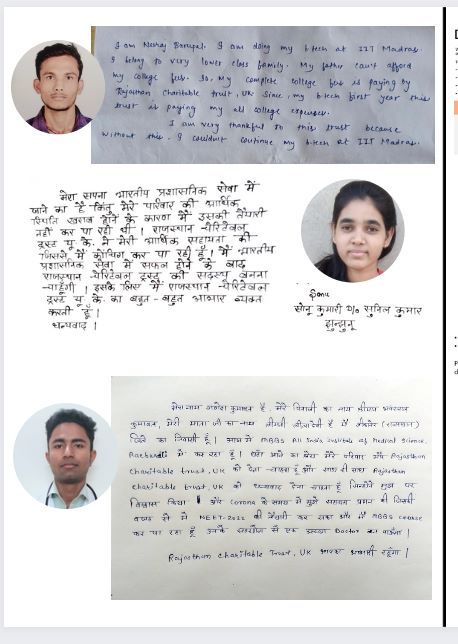 I am Neeraj Barupal. I am doing my btech at IIT Madras.
I belong to very lower class family. My father can't afford
my college fees. So, My complete college fees is paying by
Rajasthan Charitable trust, UK Since, my btech first year this
trust is paying my all college expenses.
I am very thankful to this trust because
without this, I couldn't continue my btech at IIT Madras.
मेरा सपना भारतीय प्रशासनिक सेवा में
जाने का है किंतु मेरे परिवार की आर्थिक
स्थिति खराब होने के कारण मैं उसकी तैयारी
नहीं कर पा रही थी। राजस्थान चैरिटेबल
ट्रस्ट यू के. ने मेरी आर्थिक सहायता की
जिससे मैं कोचिंग कर पा रही हूँ। मैं भारतीय
प्रशासनिक सेवा में सफल होने के बाद
राजस्थान चैरिटेबल ट्रस्ट की सदस्य बनना
चाहूँगी। इसके लिए मैं राजस्थान चैरिटेबल
ट्रस्ट यू के. का बहुत-बहुत आभार व्यक्त
करती हूँ।
धन्यवाद।
Sonu
सोनू कुमारी D/o सुनिल कुमार
झुन्झुनू
मेरा नाम है, मेरे पिताजी का नाम
कुमावत, मेरी माता जी का नाम है मैं (राजस्थान)
जिले का निवासी हूँ। MBBS All India Institute of Medical Science,
में कर रहा हूँ। मेरे परिवार और Rajasthan
Charitable trust, UK को देना चाहता हूँ और साथ ही साथ Rajasthan
charitable trust, UK को धन्यवाद देना चाहता हूँ जिन्होंने मुझ पर
विश्वास किया और Corona के समय में मुझे
वजह से मैं NEET-2022 की तैयारी कर सका और मैं MBBS course
कर पा रहा हूँ से एक अच्छा Doctor
Rajasthan Charitable Trust, UK आपका आभारी रहूँगा।